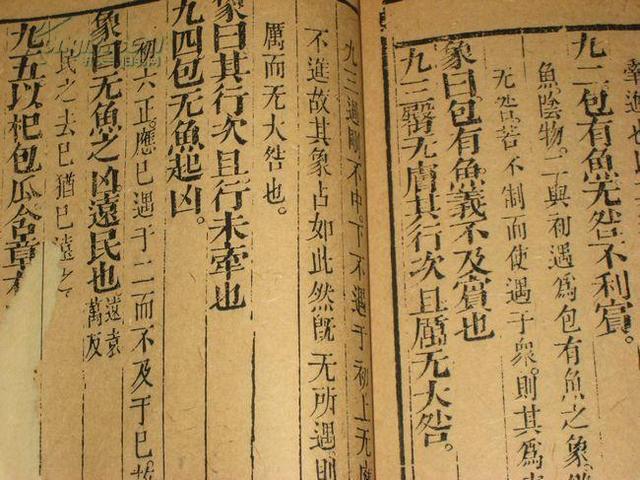 九二包有魚无咎不利賓。
魚陰物。二與初遇爲包有魚之象。
无咎。若不制而使遇于衆。則其爲
象曰。包有魚。義不及賓也
九三臀无膚其行次且厲无大咎。
九三過剛不中。下不遇于初上无應
不進故其象占如此然旣无所遇。則
厲而无大咎也。
象曰其行次且行未牽也
九四包无魚起凶。
初六正。應已遇于二而不及于已故
象曰无魚之凶遠民也遠袁萬友
民之去已猶已遠之
九五以杞包瓜含章